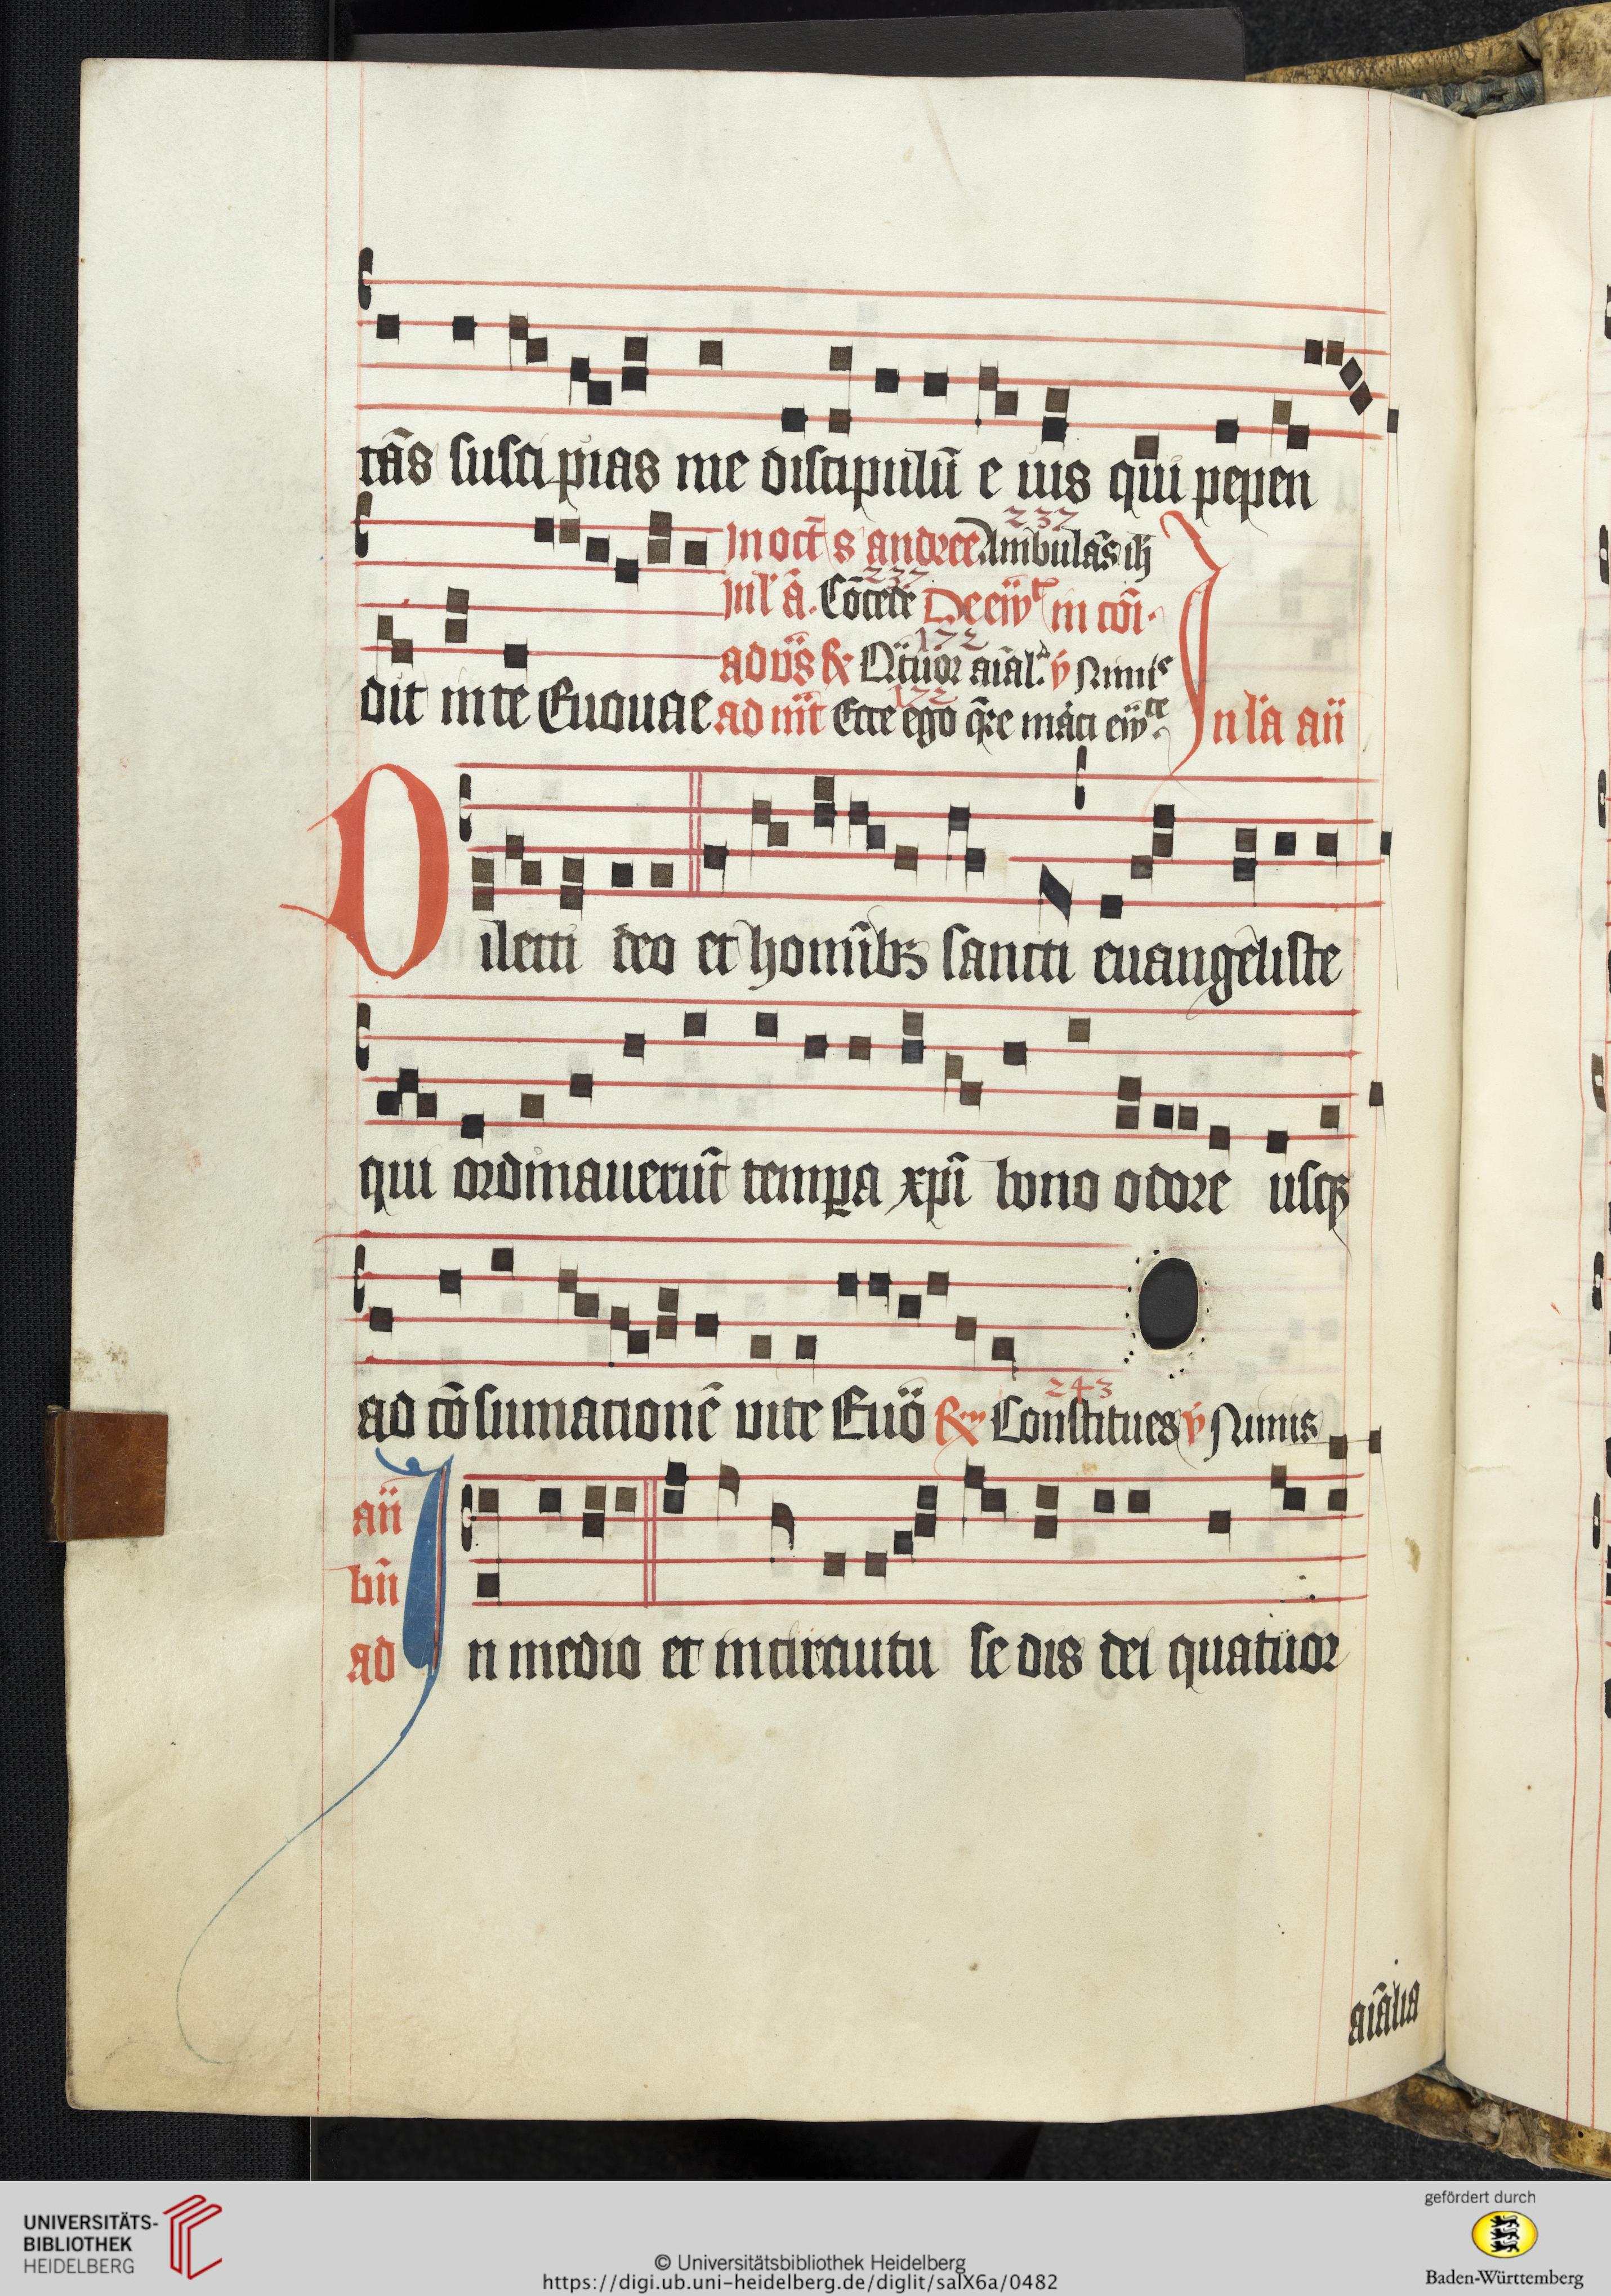 tās susci pias me discipulū e ius qui pepen
In oct̄ s andree Ambulās ih̄
237
In l' ā. Cōcede De eiı̄ḡt in cōi.
237
ad vs̄ R Qͣtuor aīal. v̄ Nimis
172
dit in te Euouae ad mt̄ Ecce ego q̄re mati eiı̄ḡ In l'a an̄
172
Dilecti deo et homībꝫ sancti euangeliste
qui ordinauerūt tempꝑa xp̄i bono odore usqꝫ
ad cōsumationē uite Euō R Constitues v̄ Nimis
243
an̄
bn̄
ad
In medio et in circuitu se dis dei quatuor
aīalia
UNIVERSITÄTS-
BIBLIOTHEK
HEIDELBERG
© Universitätsbibliothek Heidelberg
https://digi.ub.uni-heidelberg.de/diglit/salX6a/0482
gefördert durch
Baden-Württemberg